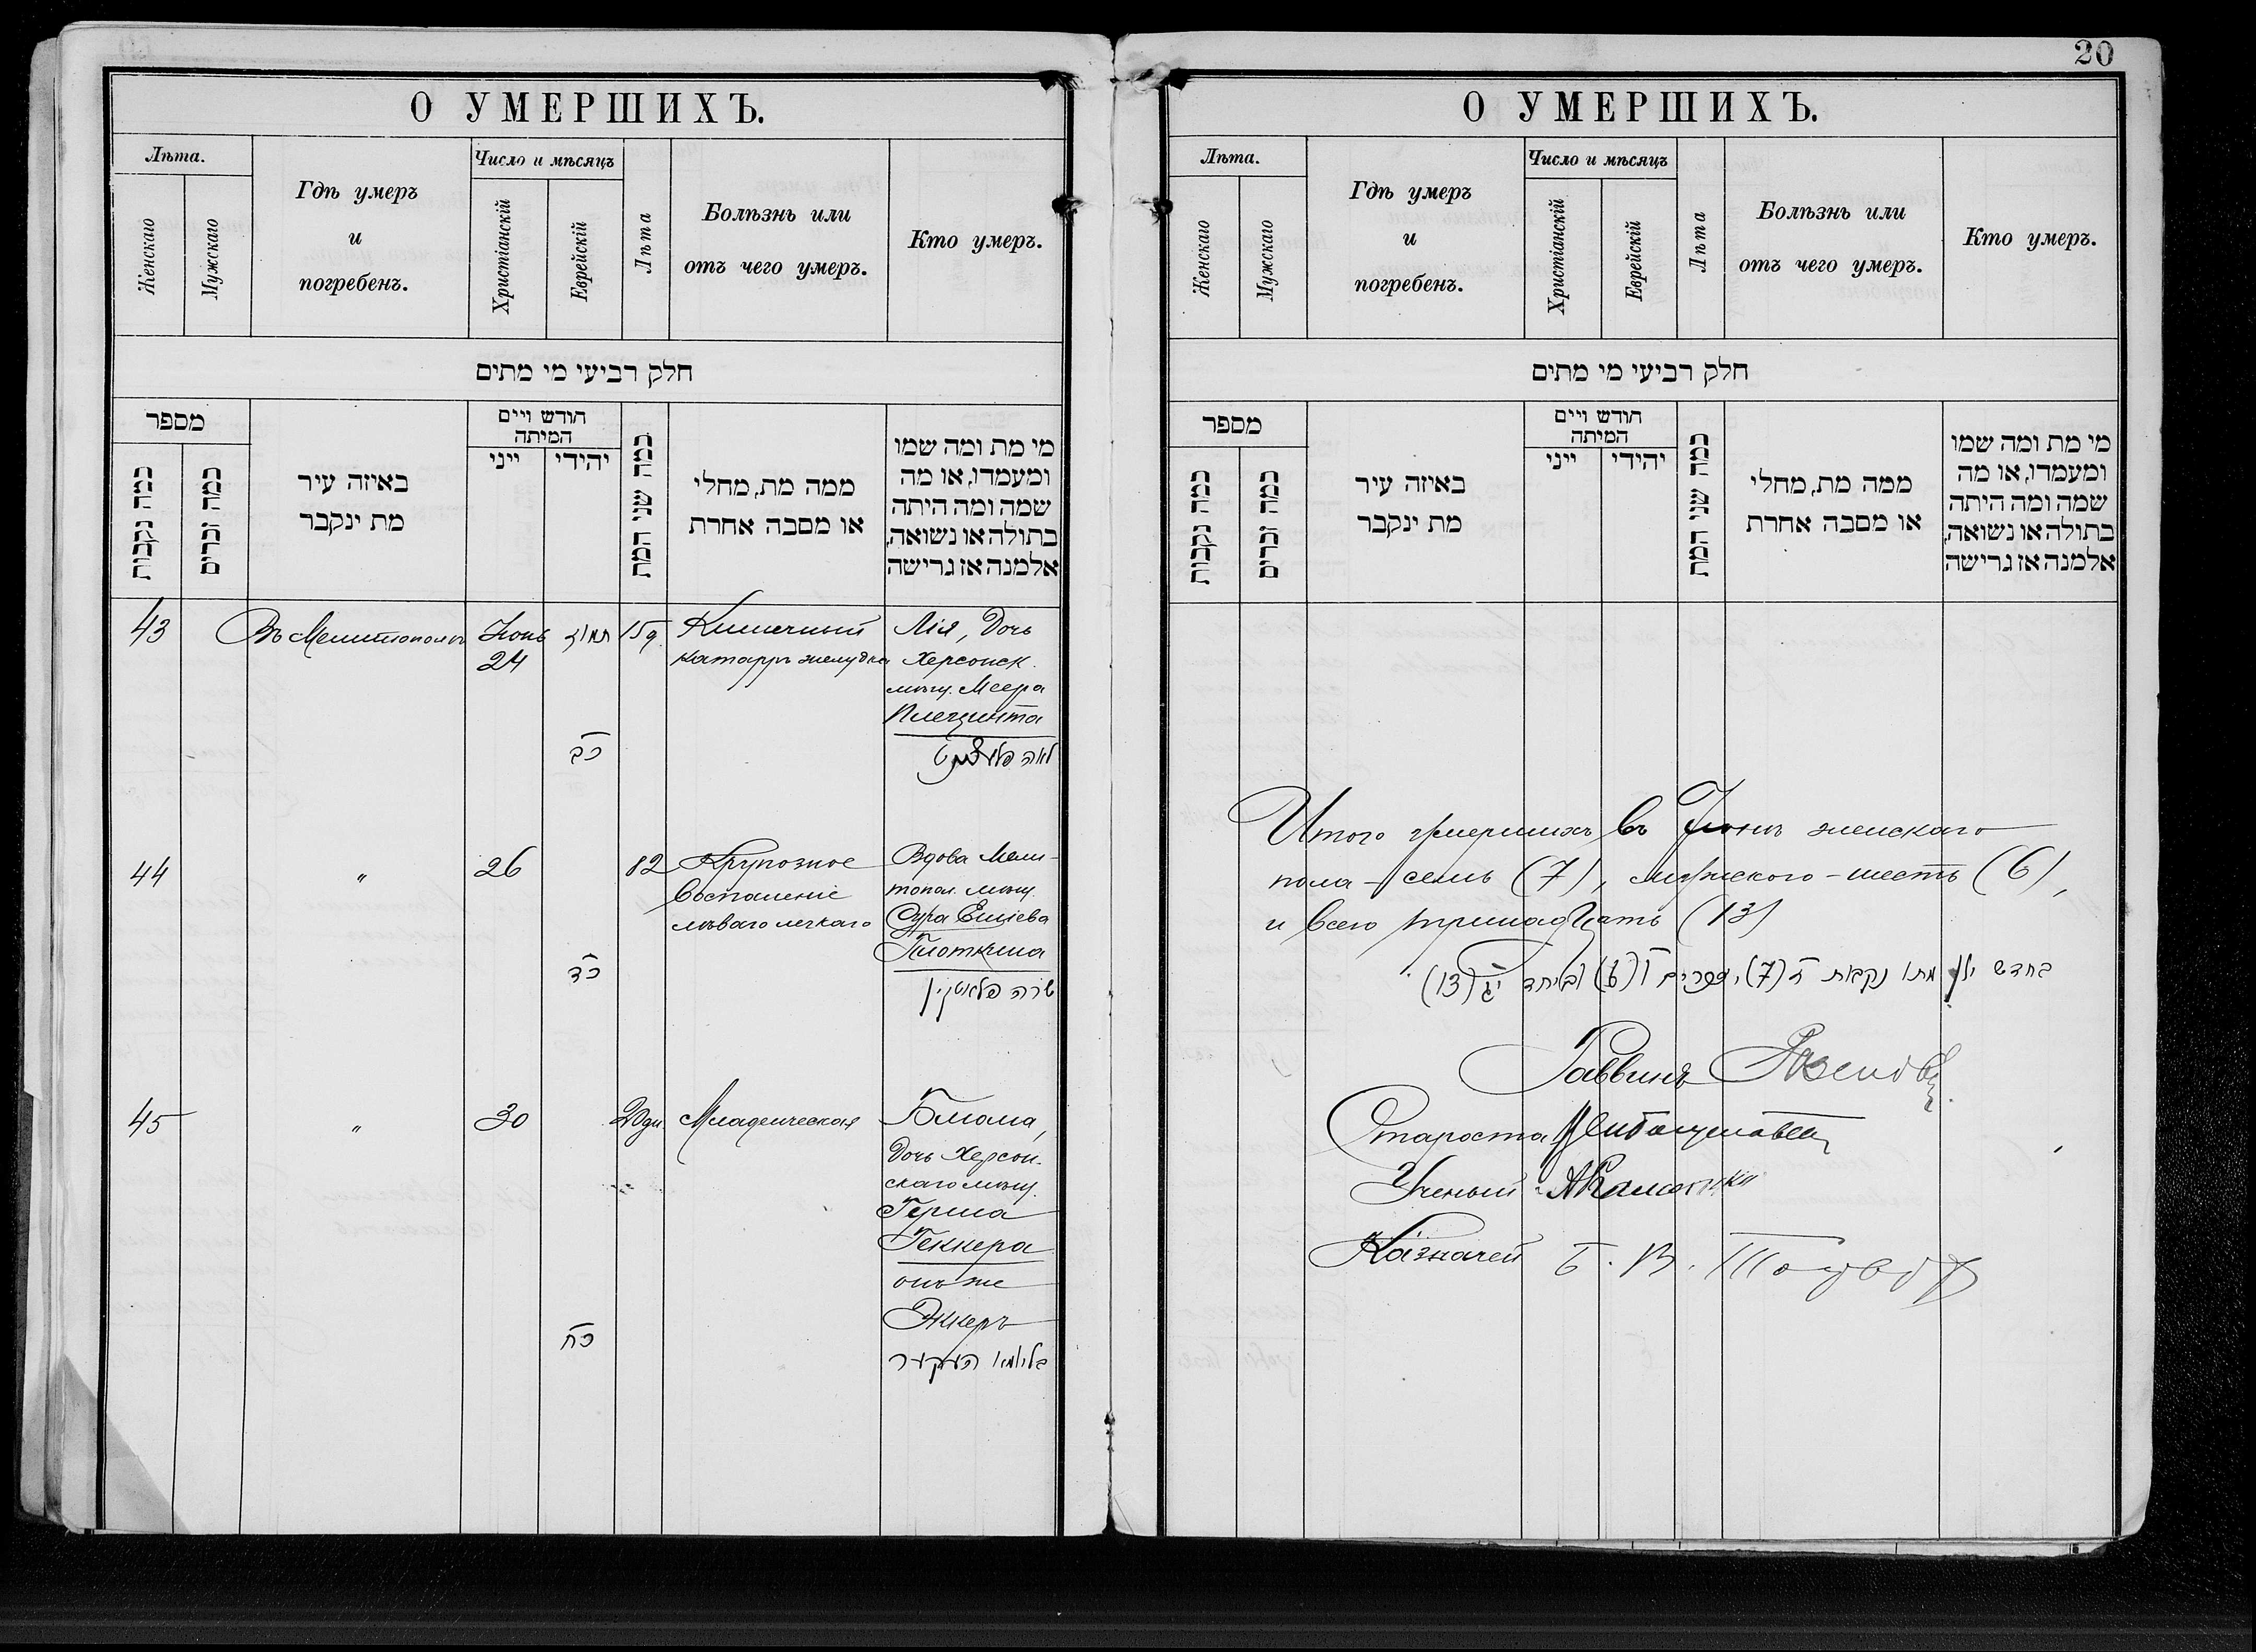 20
О УМЕРШИХЪ.
Лѣта.
Женскаго
Мужскаго
Гдѣ умеръ
и
погребенъ.
Число и мѣсяцъ
Христіанскій
Еврейскій
Лѣта
Болѣзнь или
отъ чего умеръ.
Кто умеръ.
חלק רביעי מי מתים
מספר
כמה נקבות
כמה זכרים
באיזה עיר
מת ינקבר
חודש ויים
המיתה
ייני
יהידי
כמה שני המת
ממה מת, מחלי
או מסבה אחרת
מי מת ומה שמו
ומעמדו, או מה
שמה ומה היתה
בתולה או נשואה,
אלמנה אז גרישה
43
Въ Мелитополѣ
Іюнь
24
תמוז
כב
Кишечный
катарръ желудка
Лія, Дочь
Херсонск.
мѣщ. Меера
Плецинта
לאה
44
"
26
כד
82
Крупозное
воспаленіе
лѣваго легкаго
Вдова Мели-
топол. мѣщ.
Сура Еліева
Плоткина
שרה פלאטקין
45
"
30
כח
20 дн.
Младенческая
Блюма,
Дочь Херсон-
скаго мѣщ.
Герша
Геккера
онъ же
Эккеръ
בליומא העקער
О УМЕРШИХЪ.
Лѣта.
Женскаго
Мужскаго
Гдѣ умеръ
и
погребенъ.
Число и мѣсяцъ
Христіанскій
Еврейскій
Лѣта
Болѣзнь или
отъ чего умеръ.
Кто умеръ.
חלק רביעי מי מתים
מספר
כמה נקבות
כמה זכרים
באיזה עיר
מת ינקבר
חודש ויים
המיתה
ייני
יהידי
כמה שני המת
ממה מת, מחלי
או מסבה אחרת
מי מת ומה שמו
ומעמדו, או מה
שמה ומה היתה
בתולה או נשואה,
אלמנה אז גרישה
Итого умершихъ въ Іюнѣ женскаго
пола - семь (7), мужского - шесть (6),
и всего тринадцать (13)
בחדש יולי מתו נקבות ז (7), וזכרים ו (6) וביחד יג (13)
Раввинъ
Староста
Ученый
Казначей Б. В.